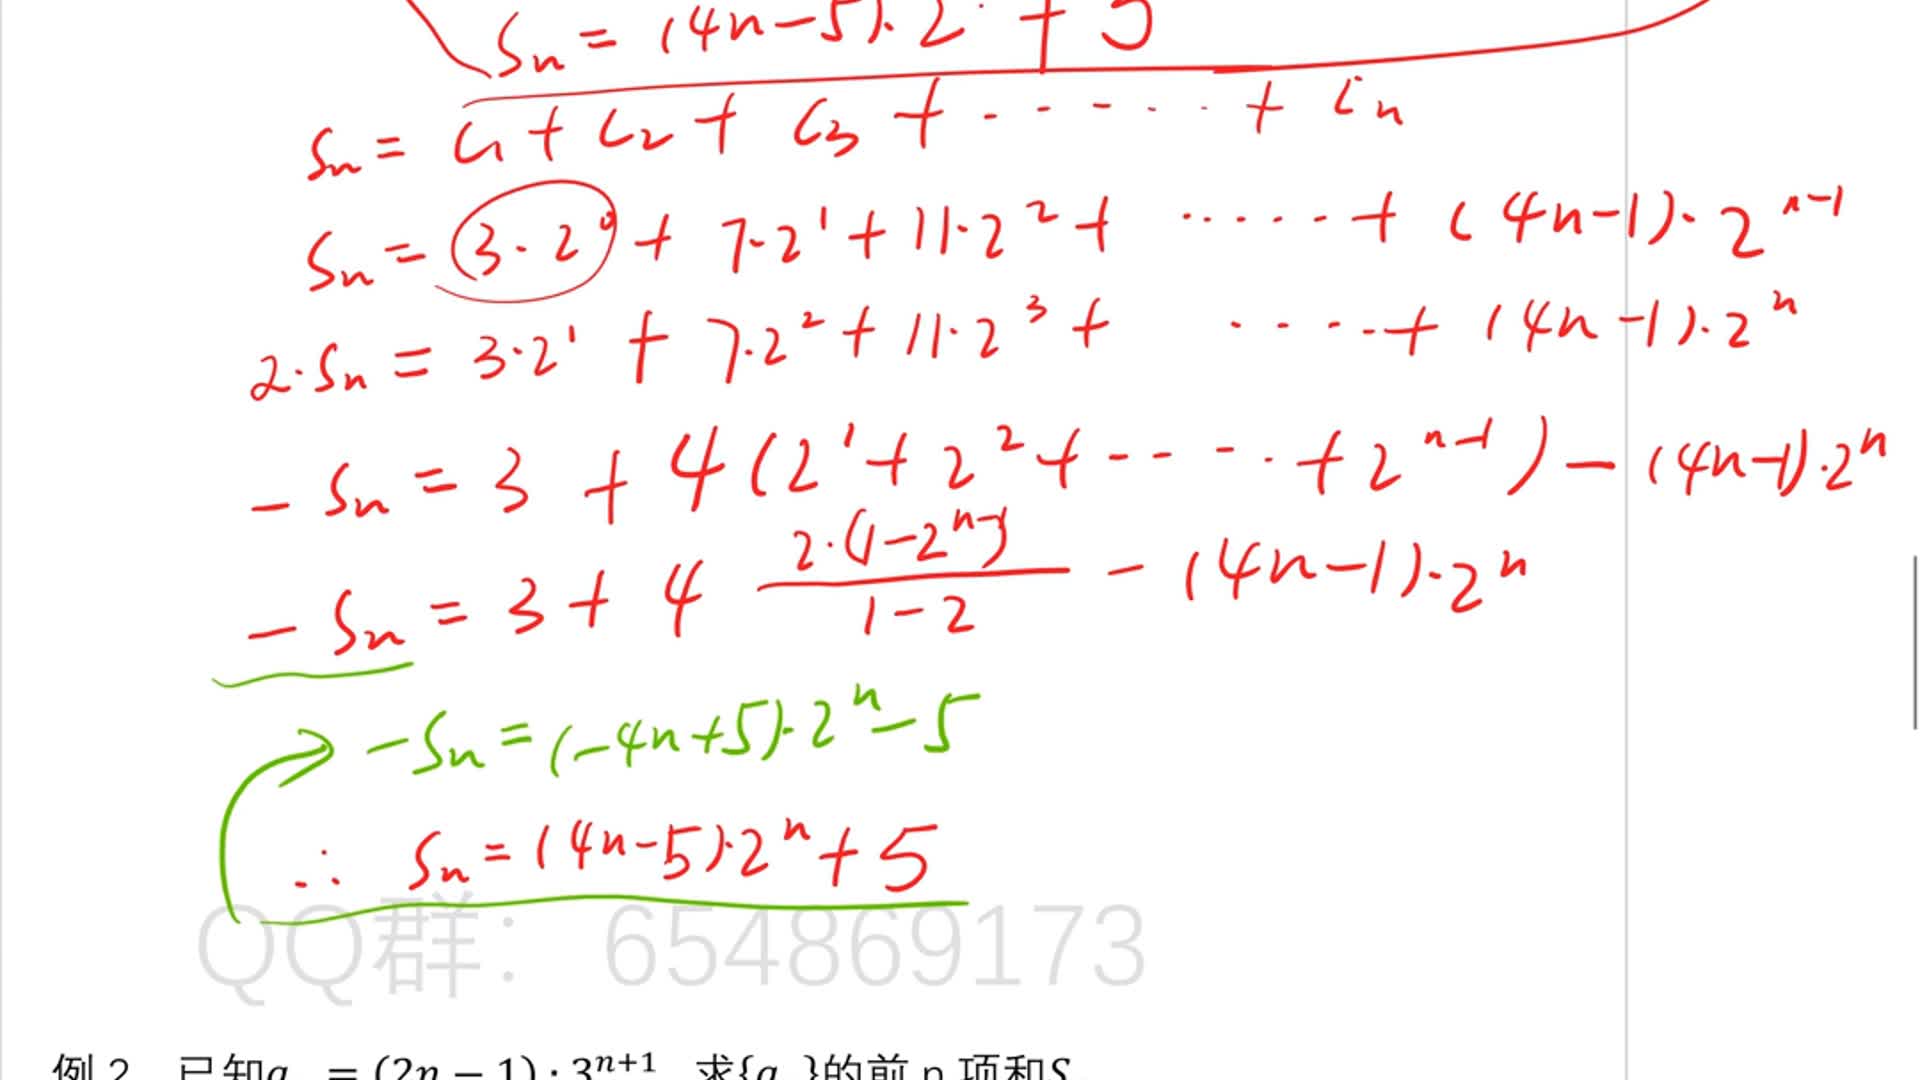 Sn = (4n-5)·2 + 5
Sn = c1 + c2 + c3 + ······ + cn
Sn = 3·2⁰ + 7·2¹ + 11·2² + ····· + (4n-1)·2ⁿ⁻¹
2·Sn = 3·2¹ + 7·2² + 11·2³ + ····+ (4n-1)·2ⁿ
-Sn = 3 + 4(2¹ + 2² + ---- + 2ⁿ⁻¹) - (4n-1)·2ⁿ
-Sn = 3 + 4 2·(1-2ⁿ⁻¹)/(1-2) - (4n-1)·2ⁿ
-Sn = (-4n+5)·2ⁿ - 5
∴ Sn = (4n-5)·2ⁿ + 5
QQ群：654869173
例 2 已知a = (2n − 1) · 3ⁿ⁺¹ 求{a }的前 n 项和S